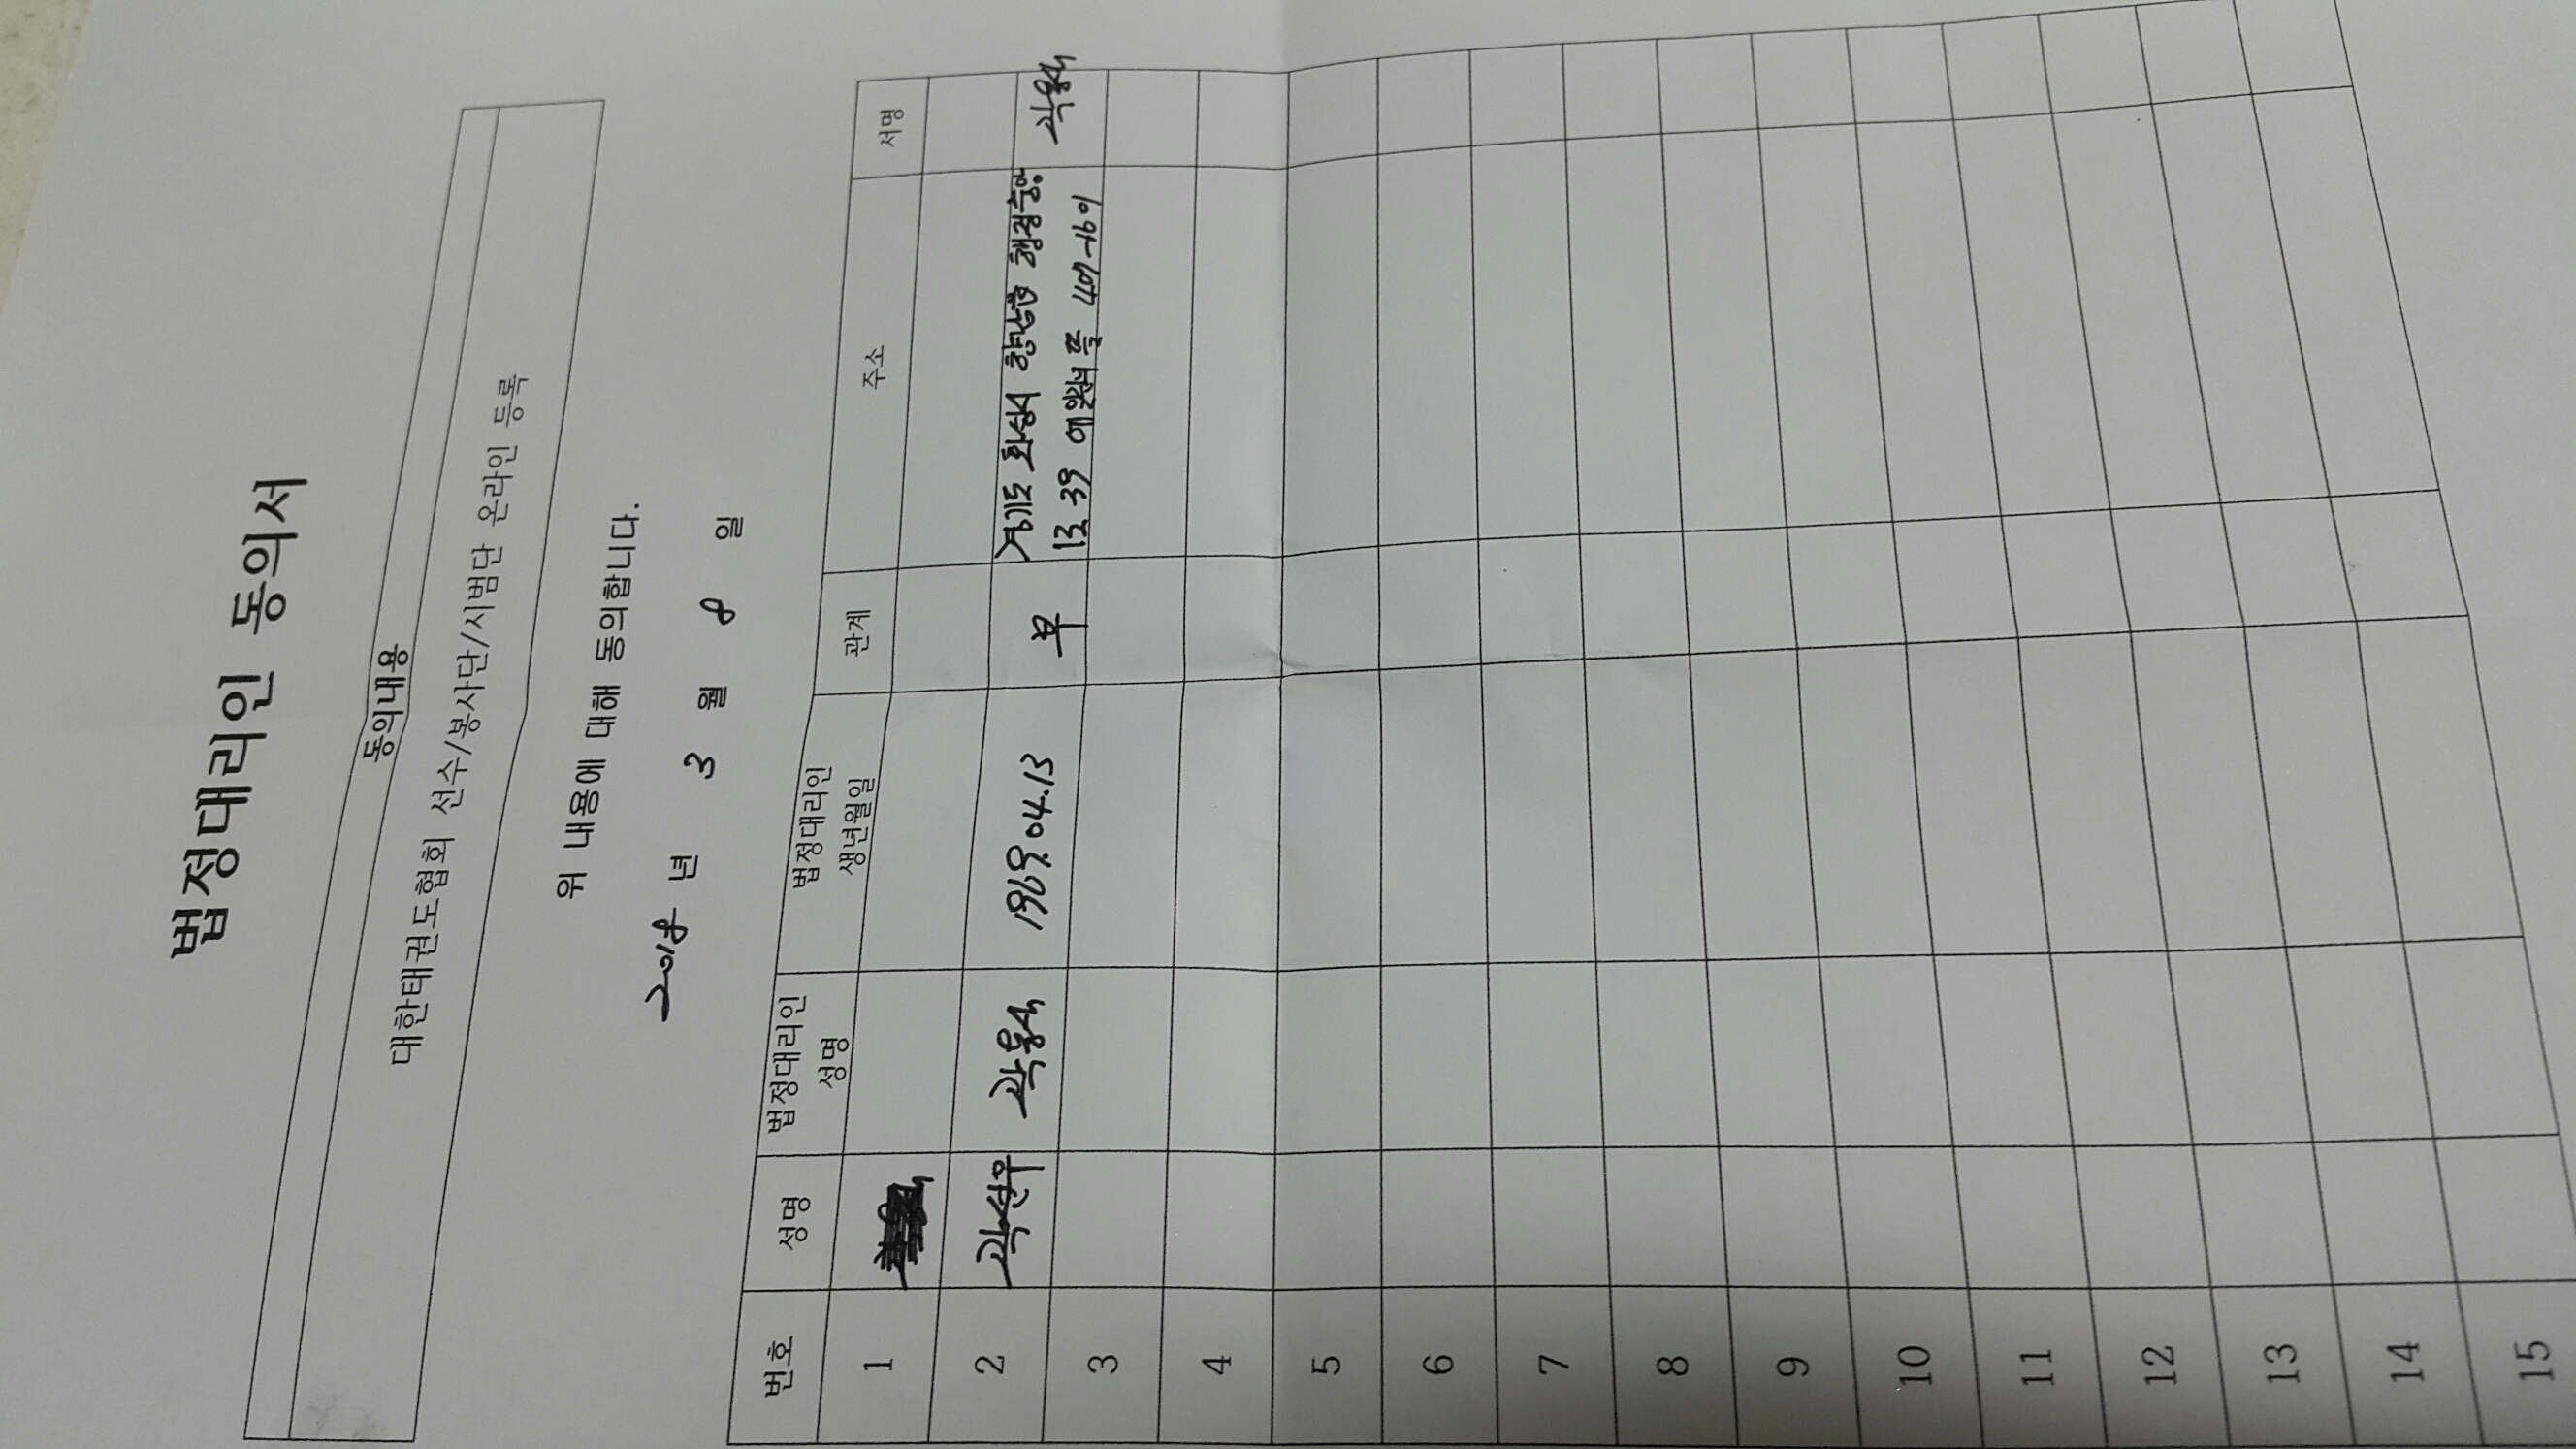 법정대리인 동의서
동의내용
대한태권도협회 선수/봉사단/시범단 온라인 등록
위 내용에 대해 동의합니다.
2018 년 3 월 8 일
번호 성명 법정대리인 성명 법정대리인 생년월일 관계 주소 서명
1
2 곽선우 1969.04.13 부 경기도 화성시 향남읍 행정중앙
1로 39 407-1601
3
4
5
6
7
8
9
10
11
12
13
14
15